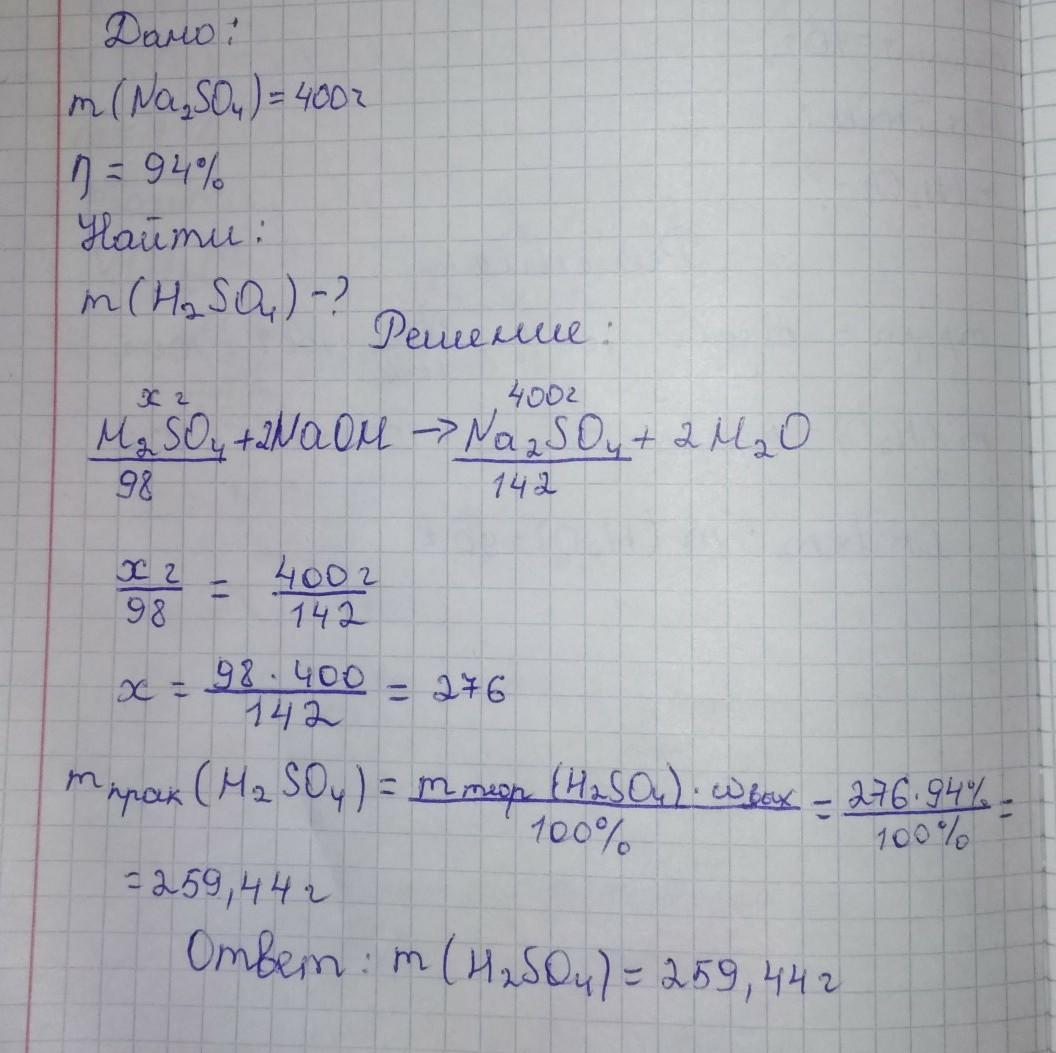 Дано:
m(Na₂SO₄)=400г
η = 94%
Найти:
m(H₂SO₄)-?
Решение:
x г 400г
H₂SO₄+2NaOH → Na₂SO₄ + 2H₂O
98 142
x г / 98 = 400г / 142
x = 98·400 / 142 = 276
m прак (H₂SO₄) = m теор (H₂SO₄)·ω вых / 100% = 276·94% / 100% =
=259,44 г
Ответ: m(H₂SO₄)=259,44г